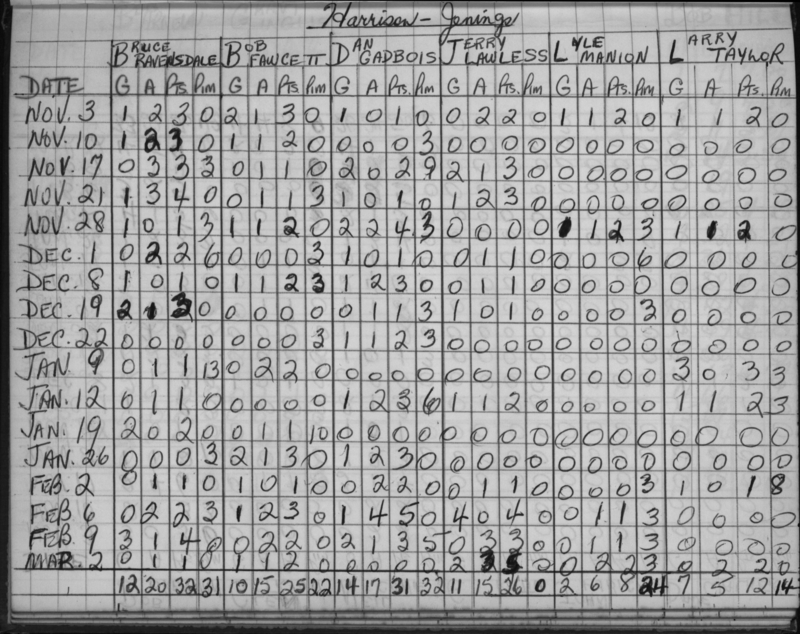 Harrison - Jenings
BRUCE RAVENSDALE BOB FAWCETT DAN GADBOIS JERRY LAWLESS LYLE MANION LARRY TAYLOR
DATE G A Pts. Pim G A Pts Pim G A Pts. Pim G A Pts. Pim G A Pts. Pim G A Pts. Pim
NOV. 3 1 2 3 0 2 1 3 0 1 0 1 0 0 2 2 0 1 1 2 0 1 1 2 0
NOV. 10 1 2 3 0 1 1 2 0 0 0 0 3 0 0 0 0 0 0 0 0 0 0 0 0
NOV. 17 0 3 3 3 0 1 1 0 2 0 2 9 2 1 3 0 0 0 0 0 0 0 0 0
NOV. 21 1 3 4 0 0 1 1 3 1 0 1 0 1 2 3 0 0 0 0 0 0 0 0 0
NOV. 28 1 0 1 3 1 1 2 0 2 2 4 3 0 0 0 0 1 1 2 3 1 1 2 0
DEC. 1 0 2 2 6 0 0 0 3 1 0 1 0 0 1 1 0 0 0 0 6 0 0 0 0
DEC. 8 1 0 1 0 1 1 2 3 1 2 3 0 0 1 1 0 0 0 0 0 0 0 0 0
DEC. 19 2 1 3 0 0 0 0 0 0 1 1 3 1 0 1 0 0 0 0 3 0 0 0 0
DEC. 22 0 0 0 0 0 0 0 3 1 1 2 3 0 0 0 0 0 0 0 0 0 0 0 0
JAN. 9 0 1 1 13 0 2 2 0 0 0 0 0 0 0 0 0 0 0 0 0 3 0 3 3
JAN. 12 0 1 1 0 0 0 0 0 1 2 3 6 1 1 2 0 0 0 0 0 1 1 2 3
JAN. 19 2 0 2 0 0 1 1 10 0 0 0 0 0 0 0 0 0 0 0 0 0 0 0 0
JAN. 26 0 0 0 3 2 1 3 0 1 2 3 0 0 0 0 0 0 0 0 0 0 0 0 0
FEB. 2 0 1 1 0 1 0 1 0 0 2 2 0 0 1 1 0 0 0 0 3 1 0 1 8
FEB 6 0 2 2 3 1 2 3 0 1 4 5 0 4 0 4 0 0 1 1 3 0 0 0 0
FEB. 9 3 1 4 0 0 2 2 0 2 1 3 5 0 3 3 0 0 1 1 3 0 0 0 0
MAR. 2 0 1 1 0 1 1 2 0 0 0 0 0 2 3 5 0 0 2 2 3 0 2 2 0
12 20 32 31 10 15 25 22 14 17 31 32 11 15 26 0 2 6 8 24 7 5 12 14